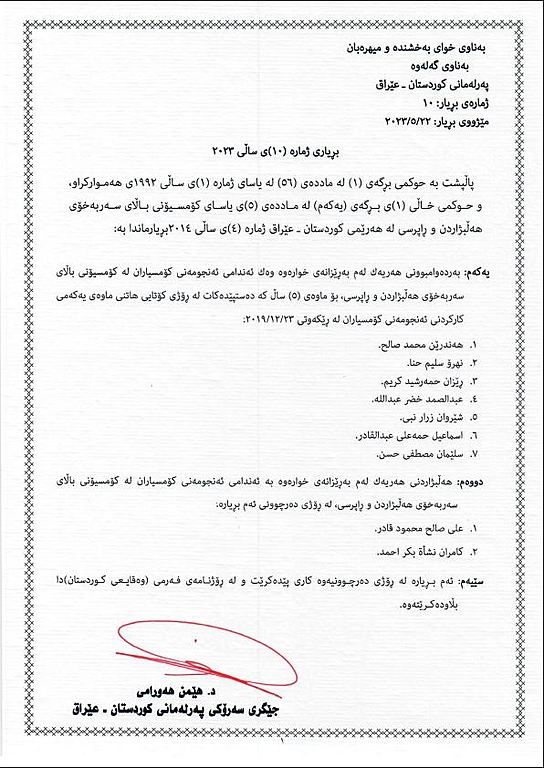 بەناوی خوای بەخشندە و میهرەبان
بەناوی گەلەوە
پەرلەمانی کوردستان ـ عێراق
ژمارەی بڕیار: ١٠
مێژووی بڕیار: ٢٠٢٣/٥/٢٢
بڕیاری ژمارە (١٠)ی ساڵی ٢٠٢٣
پاڵپشت بە حوکمی بڕگەی (١) لە ماددەی (٥٦) لە یاسای ژمارە (١)ی ساڵی ١٩٩٢ی هەموارکراو،
و حوکمی خاڵی (١)ی بڕگەی (یەکەم) لە ماددەی (٥)ی یاسای کۆمسیۆنی باڵای سەربەخۆی
هەڵبژاردن و ڕاپرسی لە هەرێمی کوردستان ـ عێراق ژمارە (٤)ی ساڵی ٢٠١٤بڕیارماندا بە:
یەکەم: بەردەوامبوونی هەریەك لەم بەڕێزانەی خوارەوە وەك ئەندامی ئەنجومەنی کۆمسیاران لە کۆمسیۆنی باڵای
سەربەخۆی هەڵبژاردن و ڕاپرسی، بۆ ماوەی (٥) ساڵ کە دەستپێدەکات لە ڕۆژی کۆتایی هاتنی ماوەی یەکەمی
کارکردنی ئەنجومەنی کۆمسیاران لە ڕێکەوتی ٢٠١٩/١٢/٢٣:
١. هەندرێن محمد صالح.
٢. نهرۆ سلیم حنا.
٣. ڕێزان حمەرشید کریم.
٤. عبدالصمد خضر عبدالله.
٥. شێروان زرار نبی.
٦. اسماعیل حمەعلی عبدالقادر.
٧. سلێمان مصطفی حسن.
دووەم: هەڵبژاردنی هەریەك لەم بەڕێزانەی خوارەوە بە ئەندامی ئەنجومەنی کۆمسیاران لە کۆمسیۆنی باڵای
سەربەخۆی هەڵبژاردن و ڕاپرسی، لە ڕۆژی دەرچوونی ئەم بڕیارە:
١. علی صالح محمود قادر.
٢. کامران نشأة بکر احمد.
سێیەم: ئەم بڕیارە لە ڕۆژی دەرچوونیەوە کاری پێدەکرێت و لە ڕۆژنامەی فەرمی (وەقایعی کوردستان)دا
بڵاودەکرێتەوە.
د. هێمن هەورامی
جێگری سەرۆکی پەرلەمانی کوردستان ـ عێراق
١